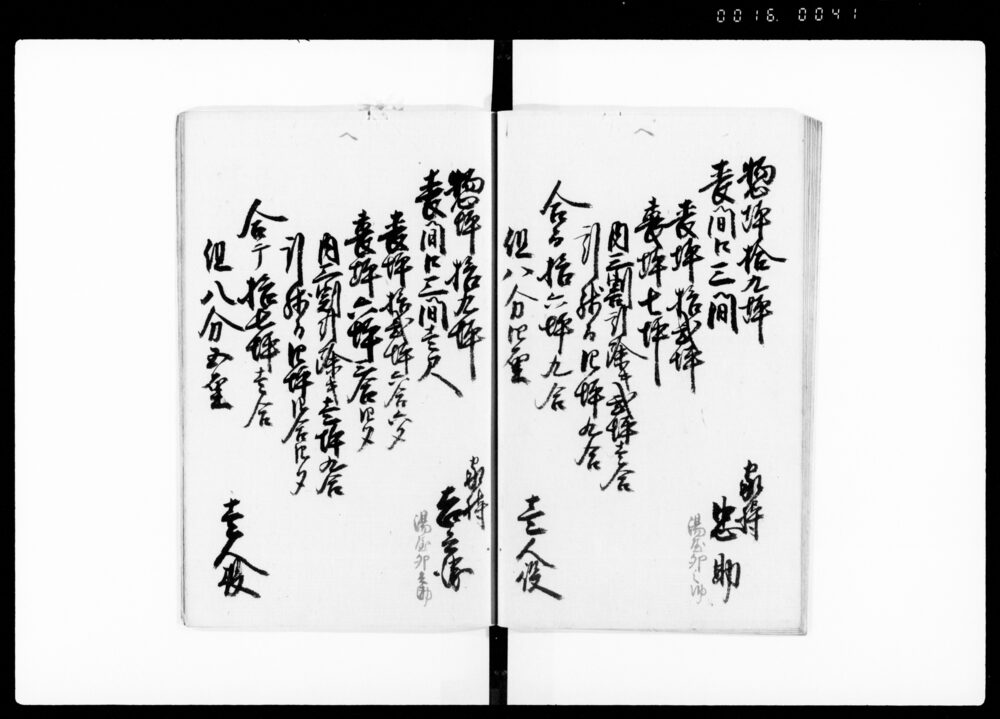 0016.0041
惣坪拾九坪
表間口三間
表坪拾弐坪
裏坪七坪
内三割引除キ弐坪壱合
引残而四坪九合
合而拾六坪九合
但八分四厘
家持
忠助
湯屋卯之助
壱人役
惣坪拾九坪
表間口三間壱尺
表坪拾弐坪六合六夕
裏坪六坪三合四夕
内三割引除キ壱坪九合
引残而四坪四合四夕
合テ拾七坪壱合
但八分五厘
家持
吉兵衛
湯屋卯之助
壱人役